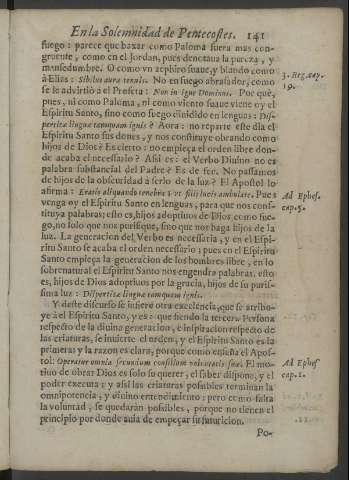 En la Solemnidad de Pentecostes. 141
fuego: parece que baxar como Paloma fuera mas con-
gruente, como en el Jordan, pues denotaua la pureza, y
mansedumbre. O como vn zephiro suaue, y blando como
à Elias: Sibilus auræ tenuis. No en fuego abrasador, como
se le advirtiò a el Profeta: Non in igne Dominus. Por què,
pues, ni como Paloma, ni como viento suaue viene oy el
Espiritu Santo, sino como fuego diuidido en lenguas: Dis-
pertitæ linguæ tamquam ignis? Aora: no reparte este dia el
Espiritu Santo sus dones, y nos constituye obrando como
hijos de Dios? Es cierto: no empieça el orden libre don-
de acaba el necessario? Assi es: el Verbo Diuino no es
palabra substancial del Padre? Es de fee. No passamos
de hijos de la obscuridad à serlo de la luz? El Apostol lo
afirma: Eratis aliquando tenebræ vt filij lucis ambulate. Pues
venga oy el Espiritu Santo en lenguas, para que nos cons-
tituya palabras; esto es, hijos adoptiuos de Dios como fue-
go, no solo que nos purifique, sino que nos haga hijos de la
luz. La generacion del Verbo es necessaria, y en el Espi-
ritu Santo se acaba el orden necessario; pues en el Espiritu
Santo empieça la generacion de los hombres libre, en lo
sobrenatural el Espiritu Santo nos engendra palabras, esto
es, hijos de Dios adoptiuos por la gracia, hijos de su puris-
sima luz: Dispertitæ linguæ tamquam ignis.
Y deste discurso se infiere otra excelencia, que se atribu-
ye à el Espiritu Santo, y es: que siendo la tercera Persona
respecto de la diuina generacion, è inspiracion respecto de
las criaturas, se inuierte el orden, y el Espiritu Santo es la
primera: y la razon es clara, porque como enseña el Apos-
tol: Operatur omnia secundum consilium voluntatis suæ. El mo-
tiuo de obrar Dios es solo su querer, el saber dispone, y el
poder executa: y assi las criaturas possibles terminan la
omnipotencia, y diuino entendimiento: pero como falta
la voluntad, se quedaràn possibles, porque no tienen el
principio por donde auia de empeçar su futuricion.
Po-
3. Reg. cap.
19.
Ad Ephes.
cap. 5.
Ad Ephes
cap. 1.